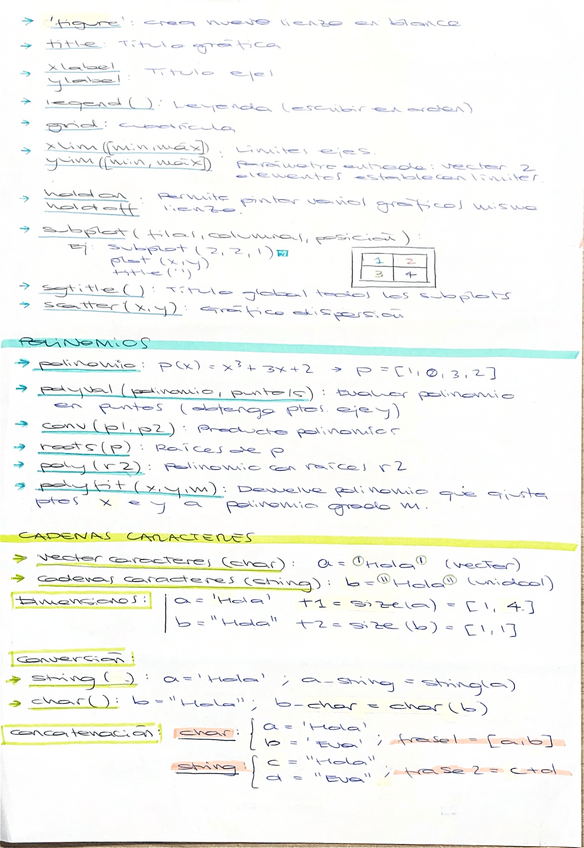 → 'figure': crea nuevo lienzo en blanco
→ title: Título gráfica
→ xlabel
ylabel: Título ejel
→ legend( ): Leyenda (escribir en orden)
→ grid: cuadrícula
→ xlim([min,máx]): Límites ejes.
ylim([min,máx]) Parámetro entrada: vector 2
elementos establecen límites.
→ hold on: Permite pintar varios gráficos mismo
hold off lienzo.
→ subplot(filas,columnas,posición):
Ej: subplot(2,2,1)
plot(x,y)
title('')
1 2
3 4
→ sgtitle(): Título global todos los subplots
→ scatter(x,y): Gráfico dispersión
POLINOMIOS
→ polinomio: p(x) = x³ + 3x + 2 → p = [1,0,3,2]
→ polyval(polinomio, punto/s): Evaluar polinomio
en puntos (obtengo ptos. eje y)
→ conv(p1,p2): Producto polinomios
→ roots(p): Raíces de p
→ poly(r2): Polinomio con raíces r2
→ polyfit(x,y,m): Devuelve polinomio que ajusta
ptos x e y a polinomio grado m.
CADENAS CARACTERES
→ vector caracteres (char): a = 'Hola' (vector)
→ cadenas caracteres (string): b = "Hola" (unidad)
Dimensiones: a = 'Hola' t1 = size(a) = [1, 4]
b = "Hola" t2 = size(b) = [1,1]
conversión:
→ string( ): a = 'Hola' ; a-string = string(a)
→ char(): b = "Hola"; b-char = char(b)
concatenación: char: { a = 'Hola'
b = 'Eva' ; frase1 = [a,b]
string { c = "Hola"
d = "Eva" ; frase2 = c+d